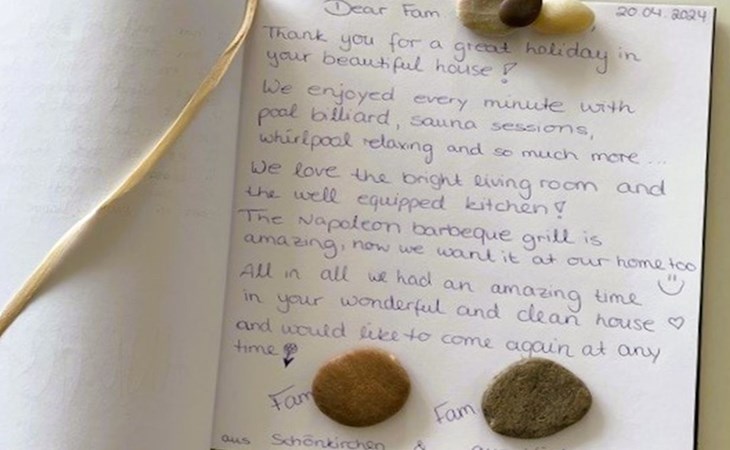 Dear Fam. 20.04.2024
Thank you for a great holiday in
your beautiful house!
We enjoyed every minute with
pool billiard, sauna sessions,
whirlpool relaxing and so much more...
We love the bright living room and
the well equipped kitchen!
The Napoleon barbeque grill is
amazing, now we want it at our home too
All in all we had an amazing time
in your wonderful and clean house ♡
and would like to come again at any
time!
Fam Fam.
aus Schönkirchen &